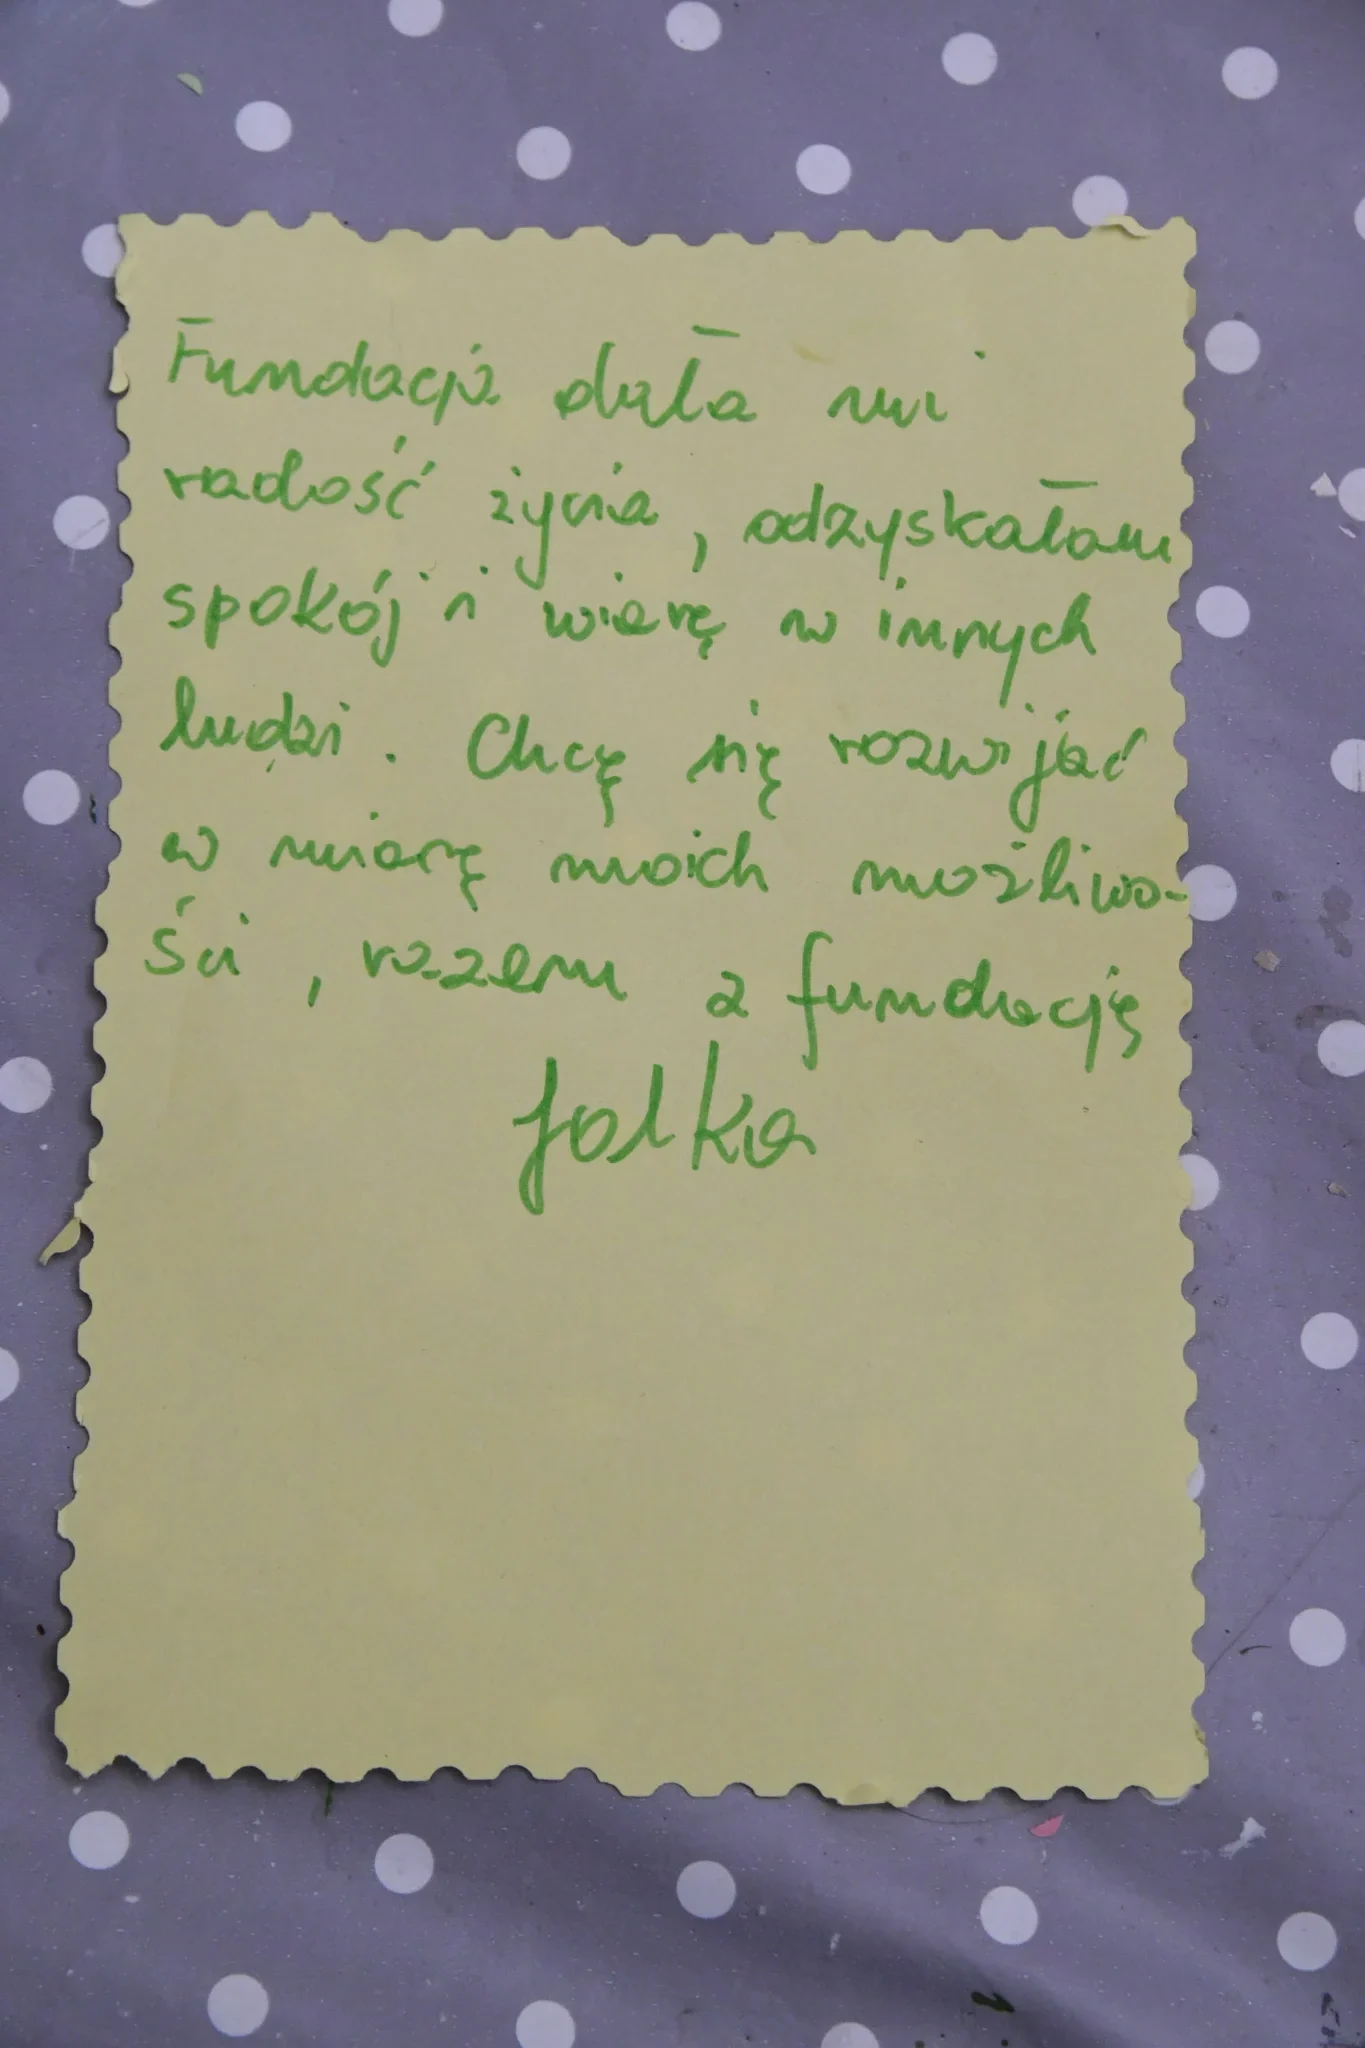 Fundacja dała mi
radość życia, odzyskałam
spokój i wiarę w innych
ludzi. Chcę się rozwijać
w miarę moich możliwo-
ści, razem z fundacją
Jolka